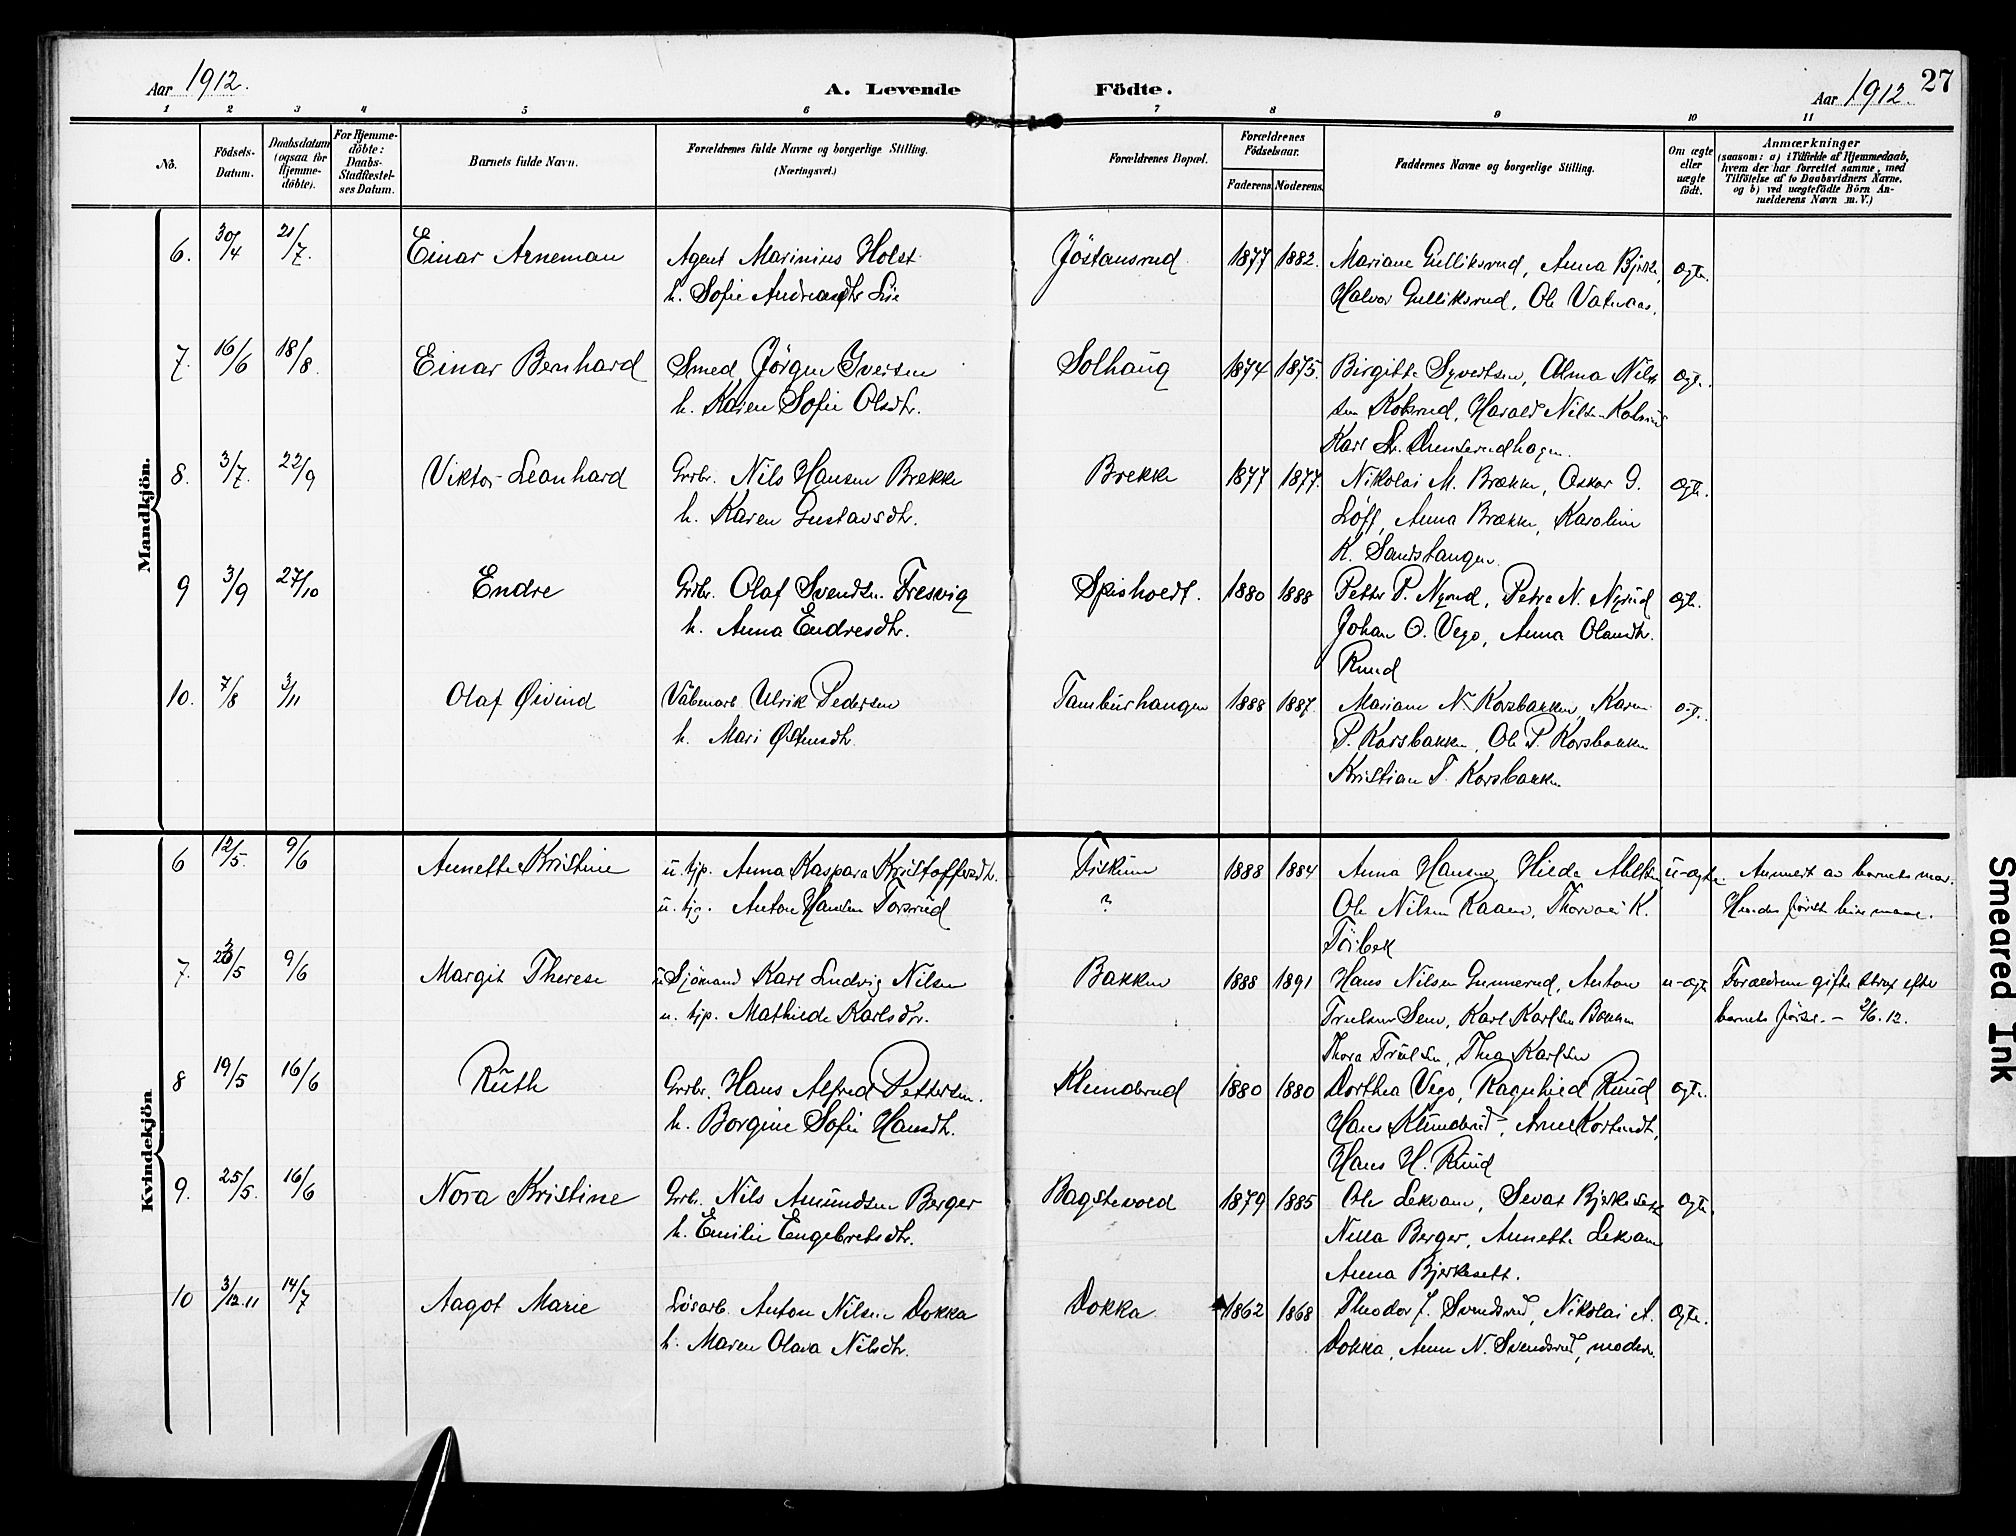 Aar 1912.
A. Levende Födte.
Aar 1912. 27
1 2 3 4 5 6 7 8 9 10 11
No.
Födsels-
Datum.
Daabsdatum
(ogsaa for
Hjemme-
döbte).
For Hjemme-
döbte:
Daabs-
Stadfæstel-
ses Datum.
Barnets fulde Navn.
Forældrenes fulde Navne og borgerlige Stilling.
(Næringsvei.)
Forældrenes Bopæl.
Forældrenes
Födselsaar.
Faderens. Moderens.
Faddernes Navne og borgerlige Stilling.
Om ægte
eller
uægte
födt.
Anmærkninger
(saasom: a) i Tilfælde af Hjemmedaab,
hvem der har forrettet samme, med
Tilföielse af to Daabsvidners Navne.
og b) ved uægtefödte Börn An-
melderens Navn m. V.)
Mandkjön.
6. 30/4 21/7. Einar Arneman Agent Marinius Holst Jöstansrud 1877 1882. Mariane Gulliksrud, Anna Bjerke, ægte.
h. Sofie Halvor Gulliksrud, Ole Vatnaas.
7. 16/6 18/8. Einar Bernhard Smed Jörgen Iversen Solhaug 1874 1875. Birgitte Syvertsen, Alma Nil- ægte.
h. Karen Sofie Olsdtr. sen Kolsrud, Harald Nilsen Kolsrud
Karl
8. 3/7. 22/9 Viktor Leonhard Grbr. Nils Hansen Brekke Brekke 1877 1877. Nikolai M. Brække, Oskar G. ægte.
h. Karen Gustavsdtr. Löff, Anna Brække, Karoline
K. Sandstangen.
9 3/9 27/10 Endre Grbr. Olaf Svendsen Fresvig Spisholdt. 1880 1888 Petter P. Nyrud, Petra N. Nyrud ægte.
h. Anna Endresdtr. Johan O. Vego, Anna Olausdtr.
Ruud
10. 7/8 3/11 Olaf Øivind Våbenarb. Ulrik Pedersen Tamburhaugen 1888 1887. Mariane N. Korsbakken, Karen ægte.
h. Mari Østensdtr. P. Korsbakken, Ole P. Korsbakken
Kristian T. Korsbakken
Kvindekjön
6 12/5. 9/6 Annette Kristine u. tjp. Anna Kaspara Kristoffersdtr. Fiskum 1888 1884 Anna Hansen, Hilda u-ægte. Anmeldt av barnets mor.
u. tjg. Anton Hansen Torsrud ? Ole Nilsen Raaen, Thorvald K. Hendes förste
7. 23/5 9/6 Margit Therese u Sjömand Karl Ludvig Nilsen Bakken 1888 1891 Hans Nilsen Gunnerud, Anton u-ægte Forældrene gifte strax efter
u. tjp. Mathilde Karlsdtr. Trulsen Sem, Karl Karlsen Bakken barnets födsel. – 2/6.12.
Thora Trulsen, Thea Karlsen
8 19/5 16/6 Ruth Grbr. Hans Alfred Pettersen. Klunderud 1880 1880 Dorthea Vego, Ragnhild Ruud ægte.
h. Borgine Sofie Hansdtr. Hans Klunderud,
Hans H. Ruud
9. 25/5. 16/6 Nora Kristine Grbr. Nils Amundsen Berger Bagstevold 1879 1885 Ole Lekvam, Sevat Bjerkesett ægte.
h. Emilie Engebretsdtr. Nilla Berger, Annette Lekvam
Anna Bjerkesett.
10 3/12.11 14/7 Aagot Marie Lösarb. Anton Nilsen Dokka Dokka 1862 1868 Theodor J. Svendsrud, Nikolai A. ægte.
h. Maren Olava Nilsdtr. Dokka, Anne N. Svendsrud, moderen.
Smeared Ink